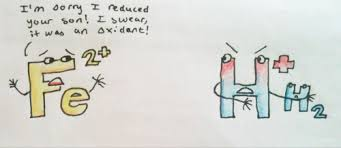 I'm sorry I reduced
your son! I swear,
it was an oxidant!
Fe²⁺
H⁺
H₂